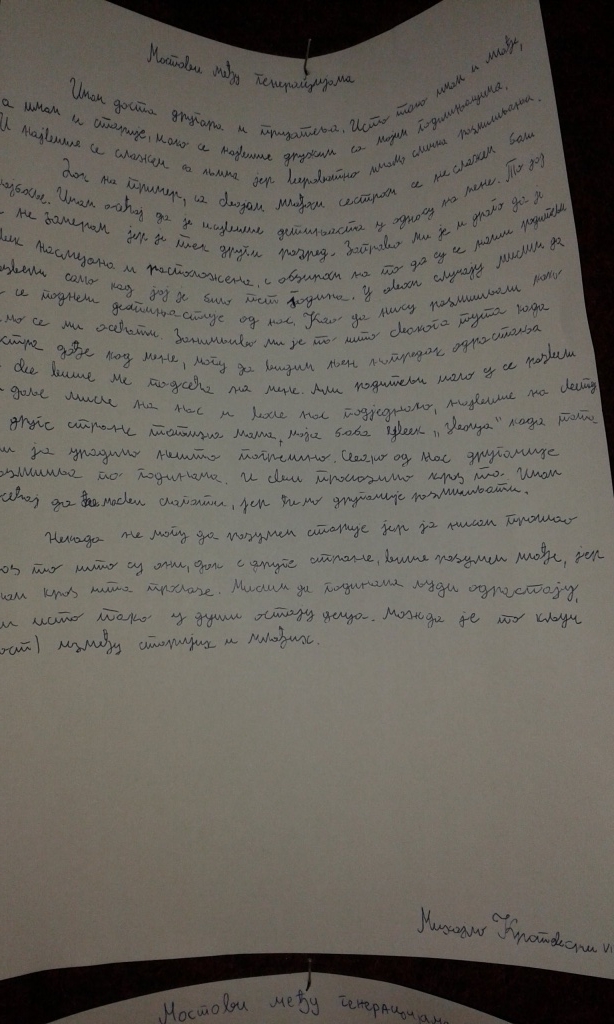 Мостови међу генерацијама
Имам доста другара и пријатеља. Исто тако имам и млађе,
а имам и старије, мада се највише дружим са мојим годињацима.
И највише се слажем са њима јер вероватно имамо слична размишљања.
Док на пример, са својом млађом сестром се не слажем баш
најбоље. Имам осећај да је исувише детињаста у односу на мене. То јој
не замерам јер је тек други разред. Заправо ми је и драго да је
увек насмејана и расположена, с обзиром на то да су се моји родитељи
развели само кад јој је било пет година. У овом случају мислим да
се поднети детињастије од нас. Као да нису размишљали како
ћемо се ми осећати. Занимљиво ми је то што сваког пута када
сестра дође код мене, могу да видим њен напредак одрастања
све више ме подсећа на мене. Али родитељи иако су се развели
и даље мисле на нас и воле нас подједнако, највише на свету
С друге стране татина мама, моја баба увек „звоца" када тата
или ја урадимо нешто погрешно. Свако од нас другачије
размишља по годинама. И сви пролазимо кроз то. Имам
осећај да се нећемо слагати, јер ћемо другачије размишљати.
Некада не могу да разумем старије јер ја нисам прошао
кроз то што су они, док с друге стране, више разумем млађе, јер
знам кроз шта пролазе. Мислим да годинама људи одрастају,
али исто тако у души остају деца. Можда је то кључ
(мост) између старијих и млађих.
Михајло VI
Мостови међу генерацијама